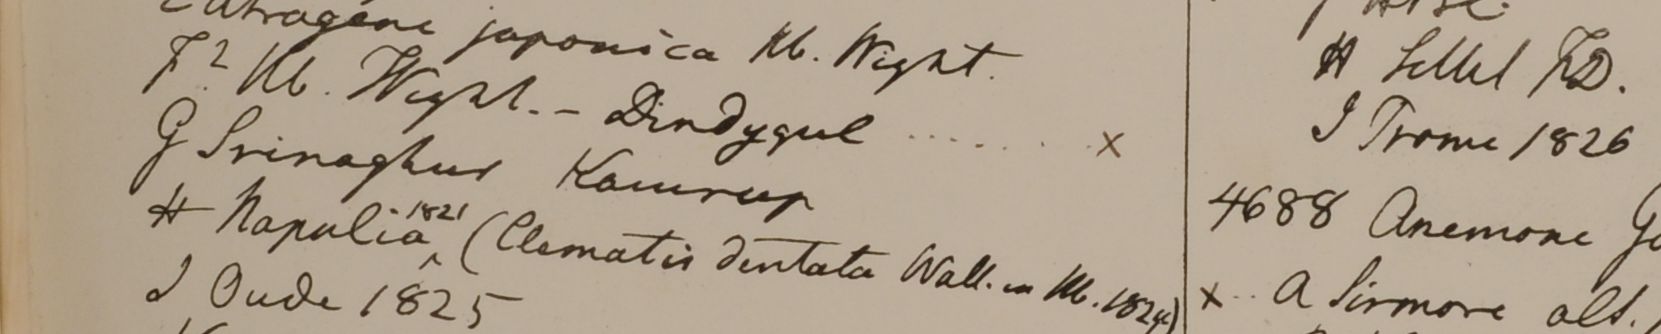 Atragene japonica Hb. Wight.
F² Hb. Wight. - Dindygul ........ x
G Srinaghur Kamrup
H Napalia 1821 (Clematis dentata Wall. in Hb. 1824)
I Oude 1825
H Sillet FD.
I Prome 1826
4688 Anemone Go
x .. a Sirmore alt.